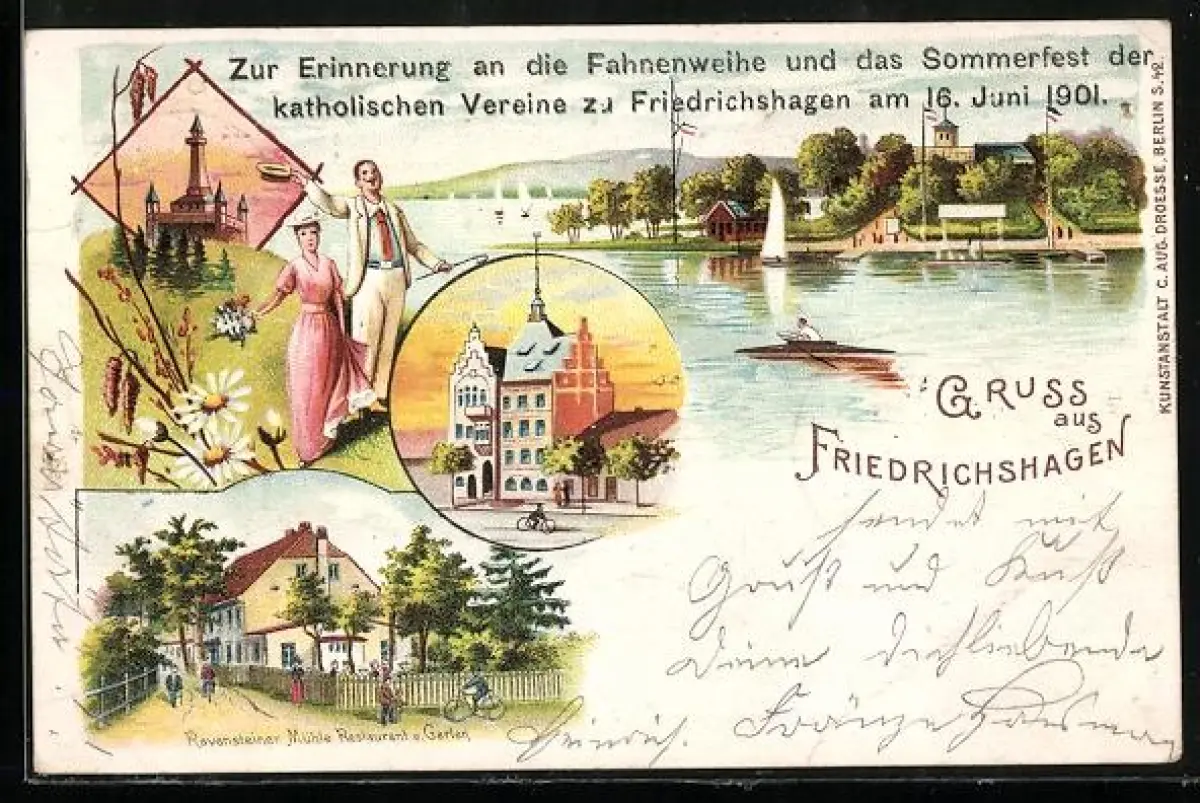 Zur Erinnerung an die Fahnenweihe und das Sommerfest der
katholischen Vereine zu Friedrichshagen am 16. Juni 1901.
KUNSTANSTALT C. AUG. DROESSE, BERLIN S. 42.
GRUSS
aus
FRIEDRICHSHAGEN
sendet mit
Gruß und Kuß
Deine dichliebende
Fränze
Heinrich.
Ravensteiner Mühle Restaurant u. Garten